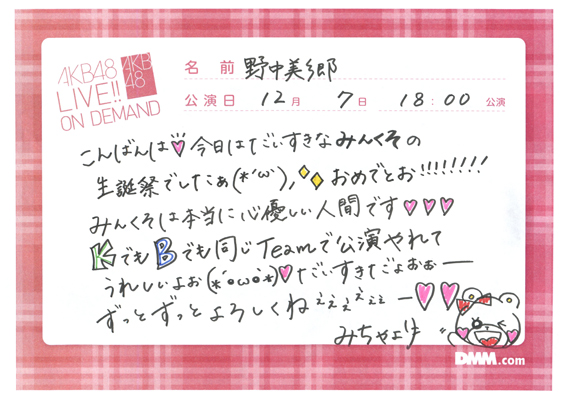 AKB48
LIVE!!
ON DEMAND
AKB
48
名前 野中美郷
公演日 12月 7日 18:00 公演
こんばんは♡今日はだいすきなみんくその
生誕祭でしたぁ(*´ω`)、おめでとお!!!!!!!!
みんくそは本当に心優しい人間です♡♡♡
KでもBでも同じTeamで公演やれて
うれしいよお(*´ω`*)♡だいすきだよおぉー
ずっとずっとよろしくねぇぇぇぇぇー♡♡
みちゃより
DMM.com